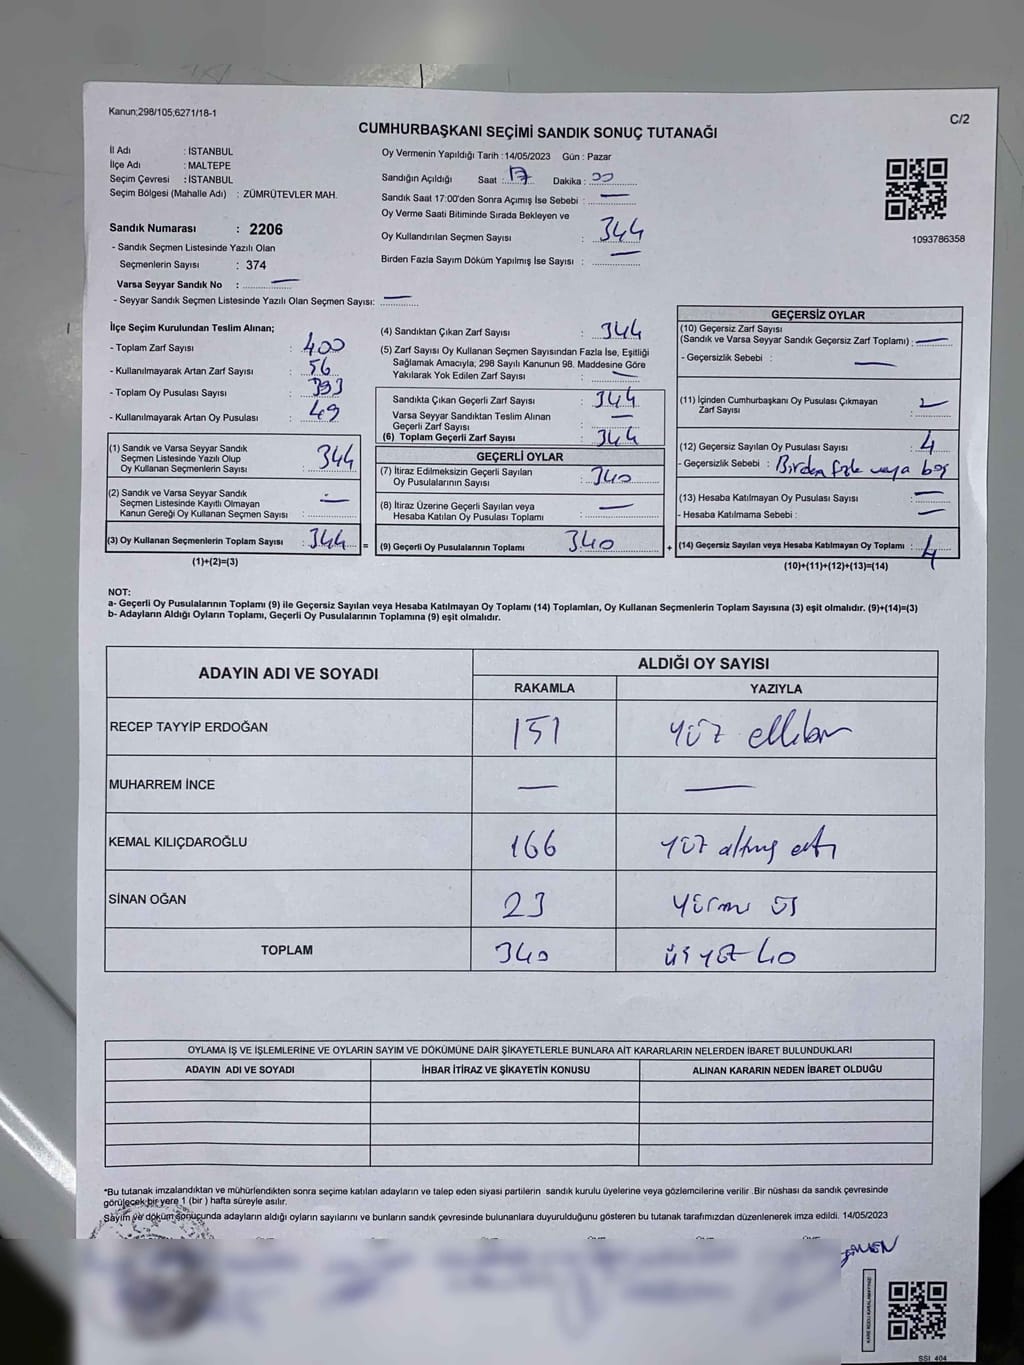 Kanun;298/105,6271/18-1
C/2
CUMHURBAŞKANI SEÇİMİ SANDIK SONUÇ TUTANAĞI
İl Adı : İSTANBUL
İlçe Adı : MALTEPE
Seçim Çevresi : İSTANBUL
Seçim Bölgesi (Mahalle Adı) : ZÜMRÜTEVLER MAH.
Sandık Numarası : 2206
- Sandık Seçmen Listesinde Yazılı Olan
Seçmenlerin Sayısı : 374
Varsa Seyyar Sandık No : —
- Seyyar Sandık Seçmen Listesinde Yazılı Olan Seçmen Sayısı: —
Oy Vermenin Yapıldığı Tarih : 14/05/2023 Gün : Pazar
Sandığın Açıldığı Saat : 17 Dakika : 00
Sandık Saat 17:00'den Sonra Açımış İse Sebebi : —
Oy Verme Saati Bitiminde Sırada Bekleyen ve
Oy Kullandırılan Seçmen Sayısı : 344
Birden Fazla Sayım Döküm Yapılmış İse Sayısı : —
1093786358
İlçe Seçim Kurulundan Teslim Alınan;
- Toplam Zarf Sayısı : 400
- Kullanılmayarak Artan Zarf Sayısı : 56
- Toplam Oy Pusulası Sayısı : 393
- Kullanılmayarak Artan Oy Pusulası : 49
(1) Sandık ve Varsa Seyyar Sandık
Seçmen Listesinde Yazılı Olup
Oy Kullanan Seçmenlerin Sayısı : 344
(2) Sandık ve Varsa Seyyar Sandık
Seçmen Listesinde Kayıtlı Olmayan
Kanun Gereği Oy Kullanan Seçmen Sayısı : —
(3) Oy Kullanan Seçmenlerin Toplam Sayısı : 344 =
(1)+(2)=(3)
(4) Sandıktan Çıkan Zarf Sayısı : 344
(5) Zarf Sayısı Oy Kullanan Seçmen Sayısından Fazla İse, Eşitliği
Sağlamak Amacıyla, 298 Sayılı Kanunun 98. Maddesine Göre
Yakılarak Yok Edilen Zarf Sayısı : —
Sandıkta Çıkan Geçerli Zarf Sayısı : 344
Varsa Seyyar Sandıktan Teslim Alınan
Geçerli Zarf Sayısı : —
(6) Toplam Geçerli Zarf Sayısı : 344
GEÇERLİ OYLAR
(7) İtiraz Edilmeksizin Geçerli Sayılan
Oy Pusulalarının Sayısı : 340
(8) İtiraz Üzerine Geçerli Sayılan veya
Hesaba Katılan Oy Pusulası Toplamı : —
(9) Geçerli Oy Pusulalarının Toplamı : 340 +
GEÇERSİZ OYLAR
(10) Geçersiz Zarf Sayısı
(Sandık ve Varsa Seyyar Sandık Geçersiz Zarf Toplamı) : —
- Geçersizlik Sebebi : —
(11) İçinden Cumhurbaşkanı Oy Pusulası Çıkmayan
Zarf Sayısı : —
(12) Geçersiz Sayılan Oy Pusulası Sayısı : 4
- Geçersizlik Sebebi : Birden fazla veya boş
(13) Hesaba Katılmayan Oy Pusulası Sayısı : —
- Hesaba Katılmama Sebebi : —
(14) Geçersiz Sayılan veya Hesaba Katılmayan Oy Toplamı : 4
(10)+(11)+(12)+(13)=(14)
NOT:
a- Geçerli Oy Pusulalarının Toplamı (9) ile Geçersiz Sayılan veya Hesaba Katılmayan Oy Toplamı (14) Toplamları, Oy Kullanan Seçmenlerin Toplam Sayısına (3) eşit olmalıdır. (9)+(14)=(3)
b- Adayların Aldığı Oyların Toplamı, Geçerli Oy Pusulalarının Toplamına (9) eşit olmalıdır.
ADAYIN ADI VE SOYADI ALDIĞI OY SAYISI
RAKAMLA YAZIYLA
RECEP TAYYİP ERDOĞAN 151 yüz ellibir
MUHARREM İNCE — —
KEMAL KILIÇDAROĞLU 166 yüz altmış altı
SİNAN OĞAN 23 yirmi üç
TOPLAM 340 üç yüz 40
OYLAMA İŞ VE İŞLEMLERİNE VE OYLARIN SAYIM VE DÖKÜMÜNE DAİR ŞİKAYETLERLE BUNLARA AİT KARARLARIN NELERDEN İBARET BULUNDUKLARI
ADAYIN ADI VE SOYADI İHBAR İTİRAZ VE ŞİKAYETİN KONUSU ALINAN KARARIN NEDEN İBARET OLDUĞU
*Bu tutanak imzalandıktan ve mühürlendikten sonra seçime katılan adayların ve talep eden siyasi partilerin sandık kurulu üyelerine veya gözlemcilerine verilir .Bir nüshası da sandık çevresinde
görülecek bir yere 1 (bir ) hafta süreyle asılır.
Sayım ve döküm sonucunda adayların aldığı oyların sayılarını ve bunların sandık çevresinde bulunanlara duyurulduğunu gösteren bu tutanak tarafımızdan düzenlenerek imza edildi. 14/05/2023
SSI_404